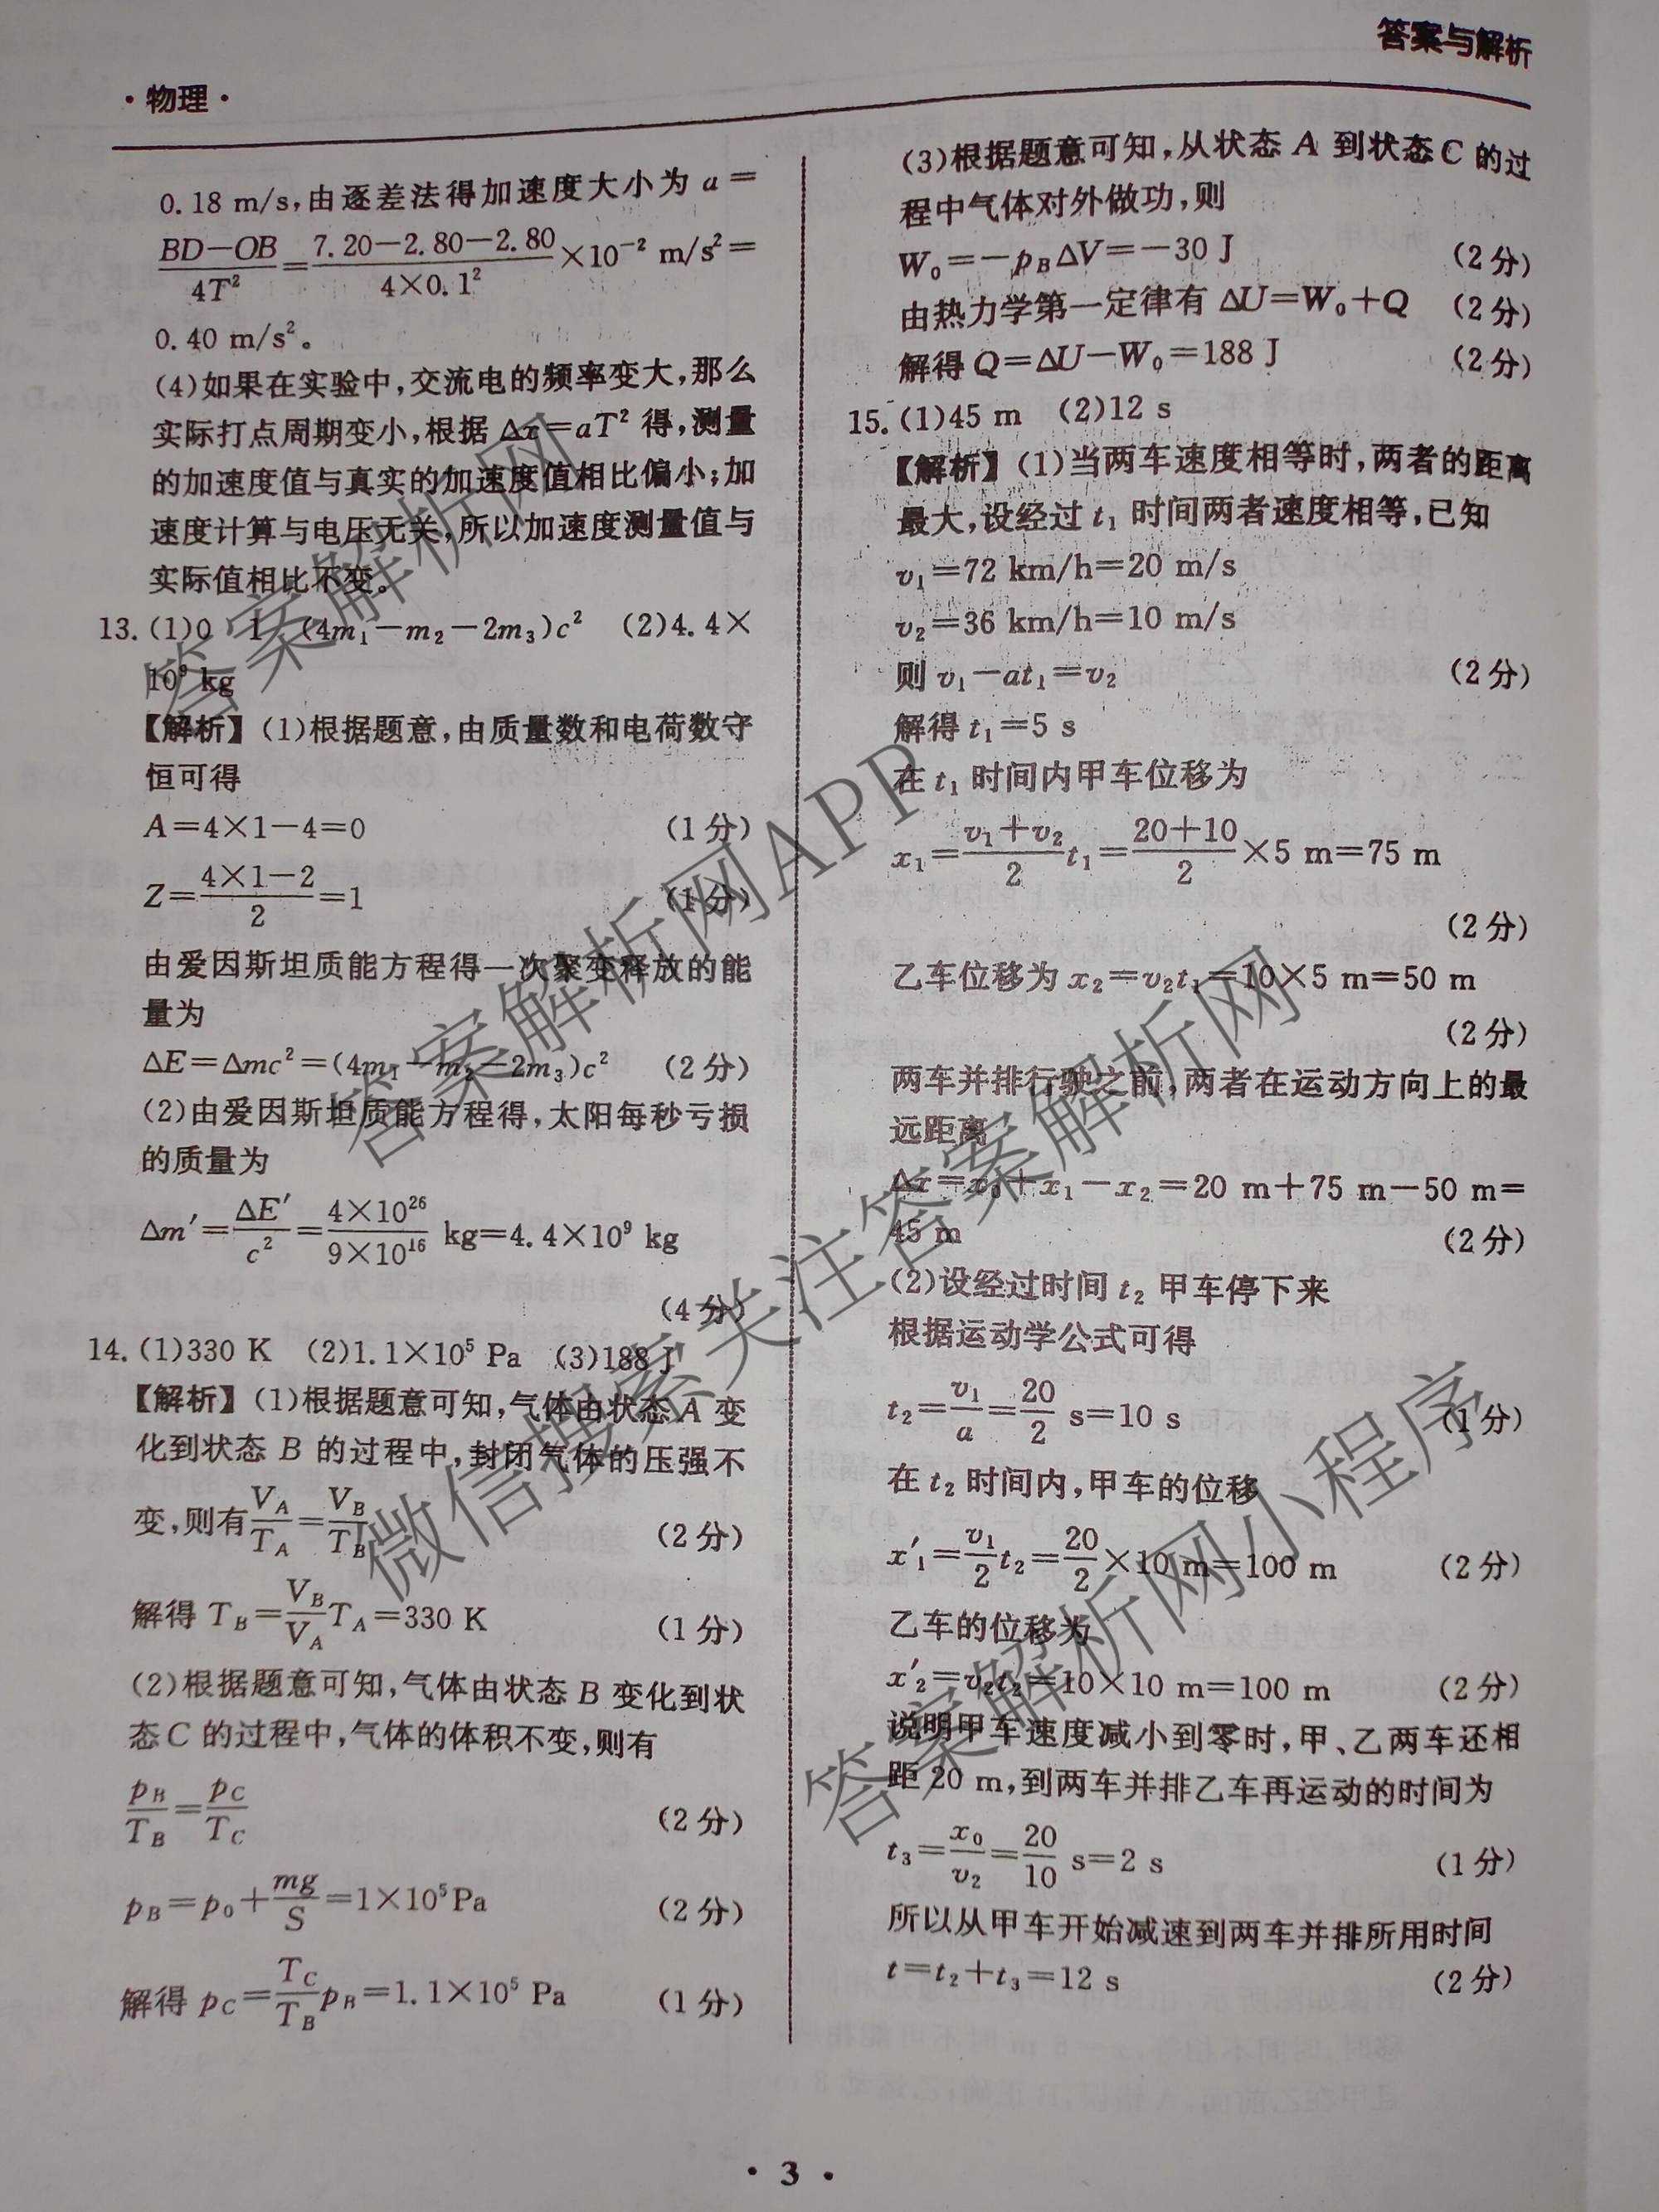 答案与解析
·物理·
0.18 m/s,由逐差法得加速度大小为 a=
BD-OB/4T²=7.20-2.80-2.80/4×0.1²×10⁻² m/s²=
0.40 m/s²。
(4)如果在实验中,交流电的频率变大,那么
实际打点周期变小,根据 Δx=aT² 得,测量
的加速度值与真实的加速度值相比偏小;加
速度计算与电压无关,所以加速度测量值与
实际值相比不变。
13.(1)0 1 (4m₁-m₂-2m₃)c² (2)4.4×
10⁹ kg
【解析】(1)根据题意,由质量数和电荷数守
恒可得
A=4×1-4=0 (1分)
Z=4×1-2/2=1 (1分)
由爱因斯坦质能方程得一次聚变释放的能
量为
ΔE=Δmc²=(4m₁-m₂-2m₃)c² (2分)
(2)由爱因斯坦质能方程得,太阳每秒亏损
的质量为
Δm′=ΔE′/c²=4×10²⁶/9×10¹⁶ kg=4.4×10⁹ kg
(4分)
14.(1)330 K (2)1.1×10⁵ Pa (3)188 J
【解析】(1)根据题意可知,气体由状态 A 变
化到状态 B 的过程中,封闭气体的压强不
变,则有V_A/T_A=V_B/T_B (2分)
解得 T_B=V_B/V_A T_A=330 K (1分)
(2)根据题意可知,气体由状态 B 变化到状
态 C 的过程中,气体的体积不变,则有
p_B/T_B=p_C/T_C (2分)
p_B=p₀+mg/S=1×10⁵Pa (2分)
解得 p_C=T_C/T_B p_B=1.1×10⁵ Pa (1分)
(3)根据题意可知,从状态 A 到状态 C 的过
程中气体对外做功,则
W₀=-p_BΔV=-30 J (2分)
由热力学第一定律有 ΔU=W₀+Q (2分)
解得 Q=ΔU-W₀=188 J (2分)
15.(1)45 m (2)12 s
【解析】(1)当两车速度相等时,两者的距离
最大,设经过 t₁ 时间两者速度相等,已知
v₁=72 km/h=20 m/s
v₂=36 km/h=10 m/s
则 v₁-at₁=v₂ (2分)
解得 t₁=5 s
在 t₁ 时间内甲车位移为
x₁=v₁+v₂/2 t₁=20+10/2×5 m=75 m
(2分)
乙车位移为 x₂=v₂t₁=10×5 m=50 m
(2分)
两车并排行驶之前,两者在运动方向上的最
远距离
Δx=x₀+x₁-x₂=20 m+75 m-50 m=
45 m (2分)
(2)设经过时间 t₂ 甲车停下来
根据运动学公式可得
t₂=v₁/a=20/2 s=10 s (1分)
在 t₂ 时间内,甲车的位移
x′₁=v₁/2 t₂=20/2×10 m=100 m (2分)
乙车的位移为
x′₂=v₂t₂=10×10 m=100 m (2分)
说明甲车速度减小到零时,甲、乙两车还相
距 20 m,到两车并排乙车再运动的时间为
t₃=x₀/v₂=20/10 s=2 s (1分)
所以从甲车开始减速到两车并排所用时间
t=t₂+t₃=12 s (2分)
·3·
答案解析网
答案解析网APP
微信搜索关注答案解析网
答案解析网小程序